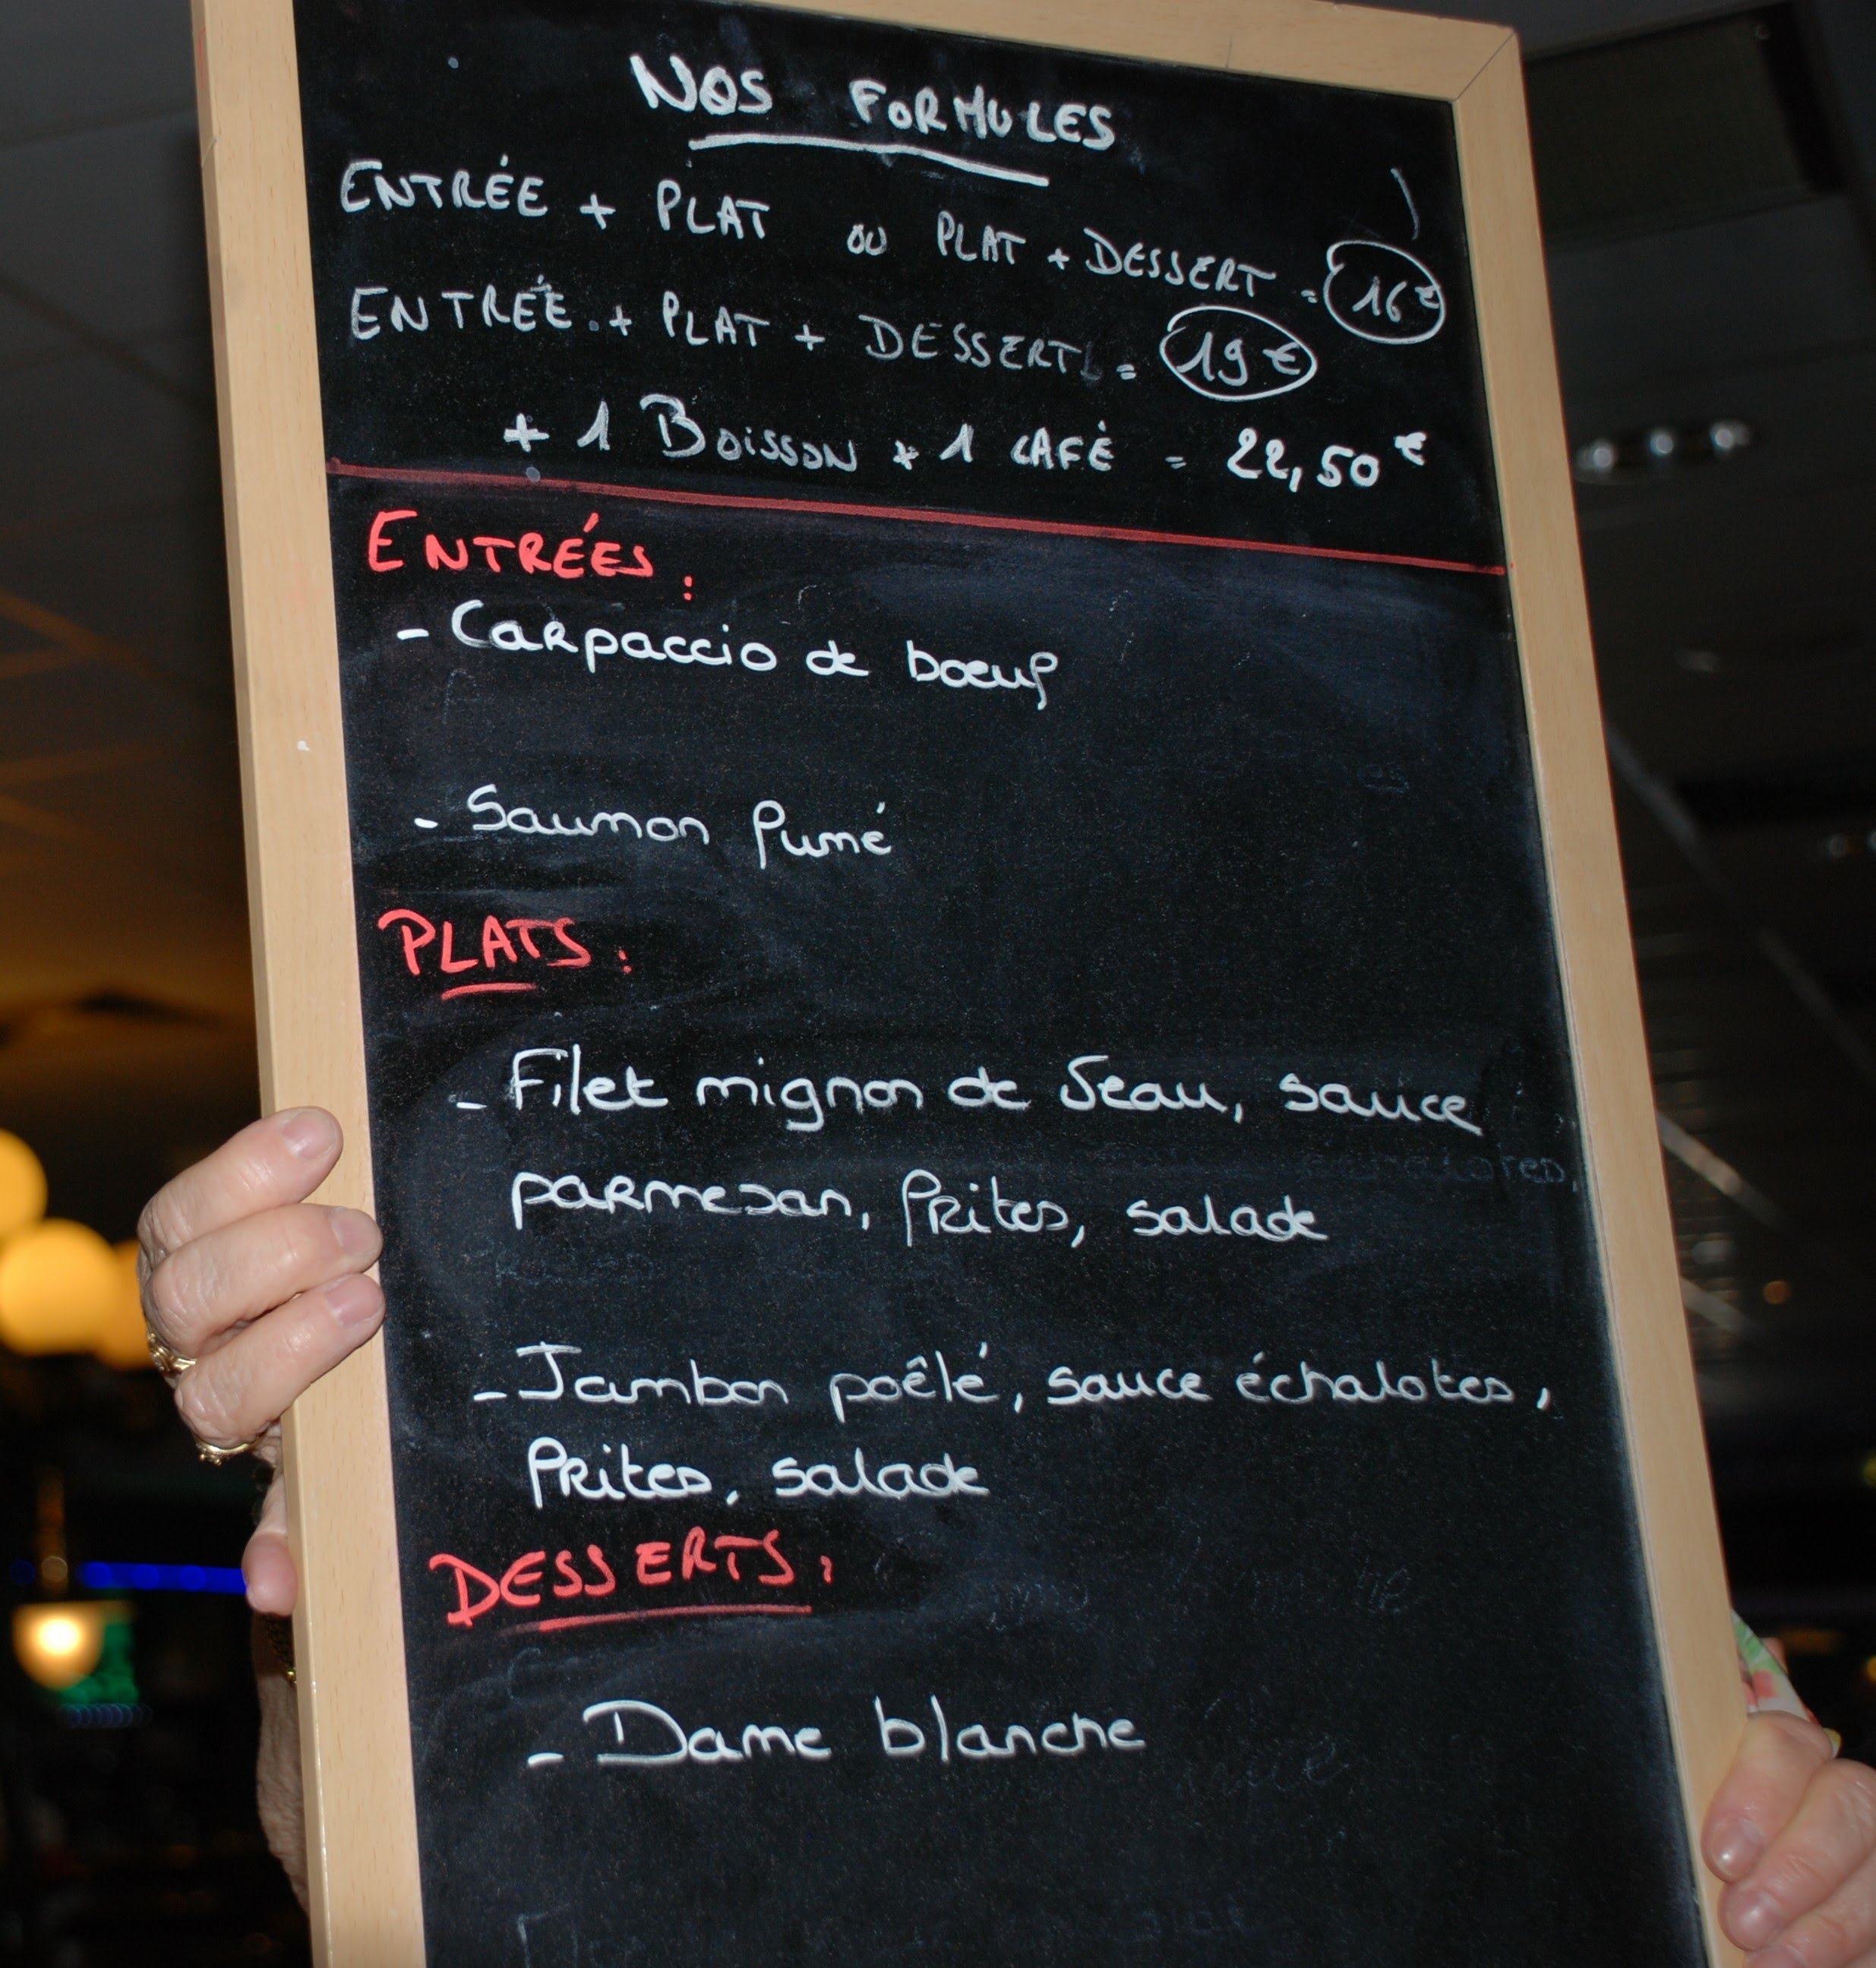 NOS FORMULES
ENTRÉE + PLAT OU PLAT + DESSERT = 16€
ENTRÉE + PLAT + DESSERT = 19€
+ 1 BOISSON + 1 CAFÉ = 22,50€
ENTRÉES :
- Carpaccio de boeuf
- Saumon fumé
PLATS :
- Filet mignon de Veau, sauce
parmesan, frites, salade
- Jambon poêlé, sauce échalotes,
frites, salade
DESSERTS :
- Dame blanche